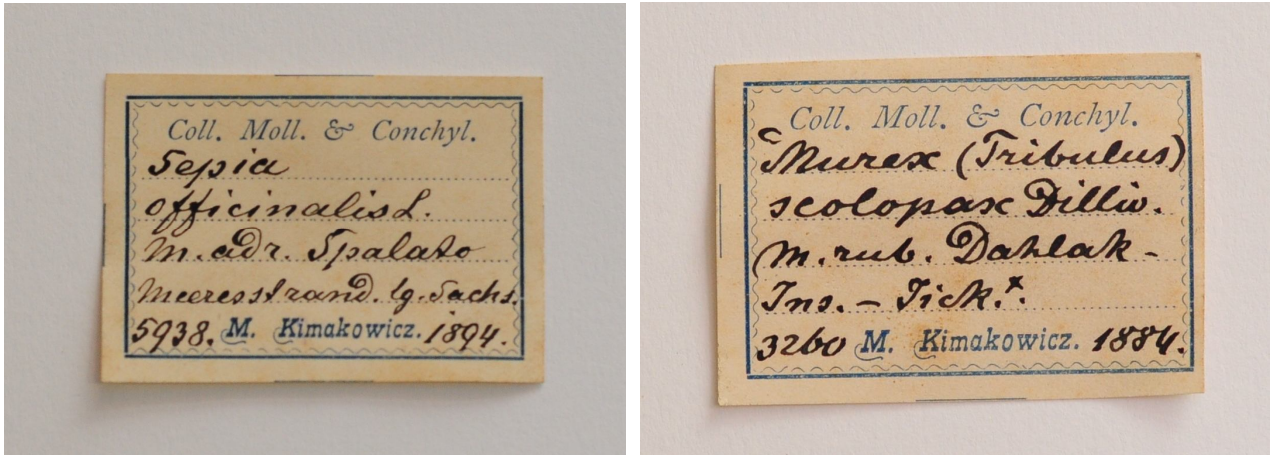 Coll. Moll. & Conchyl.
Sepia
officinalis L.
M. adr. Spalato
Meeresstrand. lg. Sachs.
5938. M. Kimakowicz. 1894.
Coll. Moll. & Conchyl.
Murex (Tribulus)
scolopax Dillw.
M. rub. Dahlak-
Ins. – Jick.
3260 M. Kimakowicz. 1884.